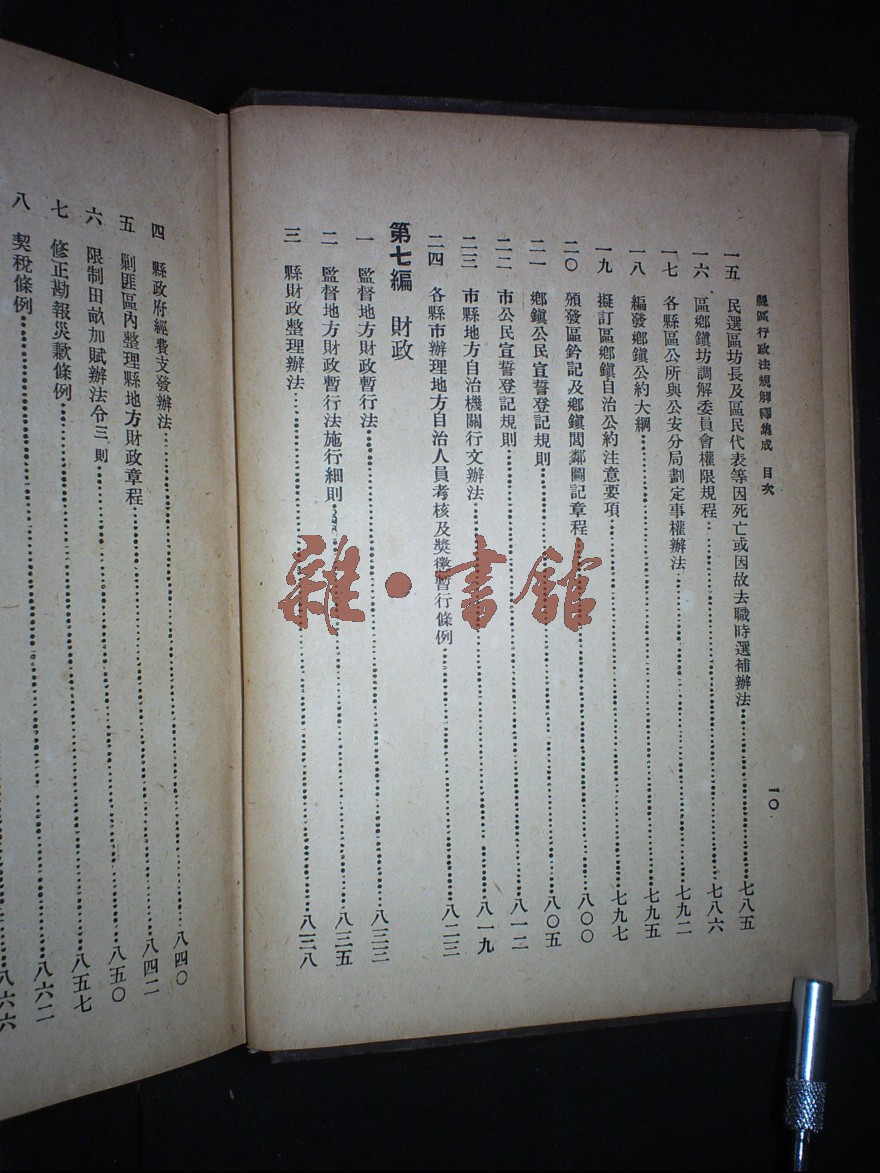 縣區行政法規解釋集成 目次 一〇
一五 民選區坊長及區民代表等因死亡或因故去職時選補辦法 七八五
一六 區鄉鎭坊調解委員會權限規程 七八六
一七 各縣區公所與公安分局劃定事權辦法 七九二
一八 編發鄉鎭公約大綱 七九五
一九 擬訂區鄉鎭自治公約注意要項 七九七
二〇 頒發區鈐記及鄉鎭閭鄰圖記章程 八〇〇
二一 鄉鎭公民宣誓登記規則 八〇五
二二 市公民宣誓登記規則 八一二
二三 市縣地方自治機關行文辦法 八一九
二四 各縣市辦理地方自治人員考核及獎懲暫行條例 八二三
第七編 財政
一 監督地方財政暫行法 八三三
二 監督地方財政暫行法施行細則 八三五
三 縣財政整理辦法 八三八
四 縣政府經費支發辦法 八四〇
五 剿匪區內整理縣地方財政章程 八四二
六 限制田畝加賦辦法令三則 八五〇
七 修正勘報災歉條例 八五七
八 契稅條例 八六二
八六六
雜·書館